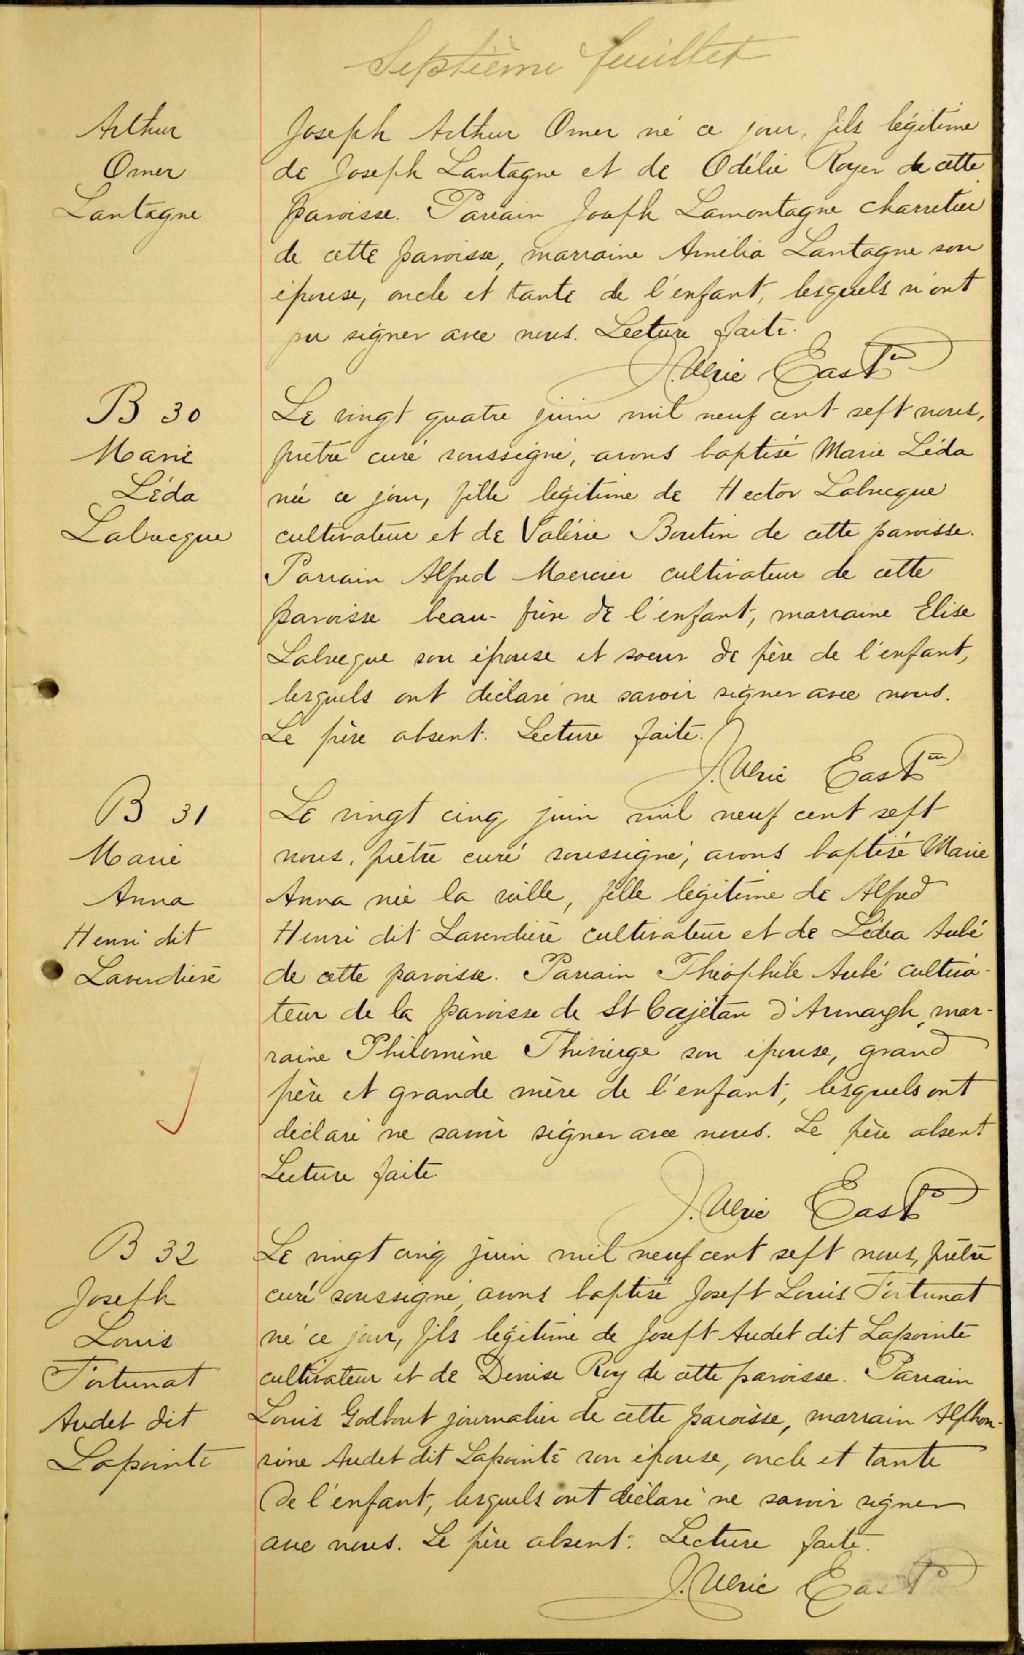 Septième feuillet
Arthur
Omer
Lantagne
Joseph Arthur Omer né ce jour, fils légitime
de Joseph Lantagne et de Odélie Royer de cette
paroisse. Parrain Joseph Lamontagne charretier
de cette paroisse, marraine Amélia Lantagne son
épouse, oncle et tante de l'enfant, lesquels n'ont
pu signer avec nous. Lecture faite.
J. Ulric East ptre
B 30
Marie
Léda
Labrecque
Le vingt quatre juin mil neuf cent sept nous,
prêtre curé soussigné, avons baptisé Marie Léda
née ce jour, fille légitime de Hector Labrecque
cultivateur et de Valérie Boutin de cette paroisse.
Parrain Alfred Mercier cultivateur de cette
paroisse beau-frère de l'enfant, marraine Elise
Labrecque son épouse et soeur de père de l'enfant,
lesquels ont déclaré ne savoir signer avec nous.
Le père absent. Lecture faite.
J. Ulric East ptre
B 31
Marie
Anna
Henri dit
Laverdière
Le vingt cinq juin mil neuf cent sept
nous, prêtre curé soussigné, avons baptisé Marie
Anna née la veille, fille légitime de Alfred
Henri dit Laverdière cultivateur et de Léda Aubé
de cette paroisse. Parrain Théophile Aubé cultiva-
teur de la paroisse de St Cajétan d'Armagh, mar-
raine Philomène Thivierge son épouse, grand
père et grande mère de l'enfant, lesquels ont
déclaré ne savoir signer avec nous. Le père absent
Lecture faite
J. Ulric East
B 32
Joseph
Louis
Fortunat
Audet dit
Lapointe
Le vingt cinq juin mil neuf cent sept nous, prêtre
curé soussigné, avons baptisé Joseph Louis Fortunat
né ce jour, fils légitime de Joseph Audet dit Lapointe
cultivateur et de Denise Roy de cette paroisse. Parrain
Louis Godbout journalier de cette paroisse, marrain Alphon-
sine Audet dit Lapointe son épouse, oncle et tante
de l'enfant, lesquels ont déclaré ne savoir signer
avec nous. Le père absent. Lecture faite.
J. Ulric East